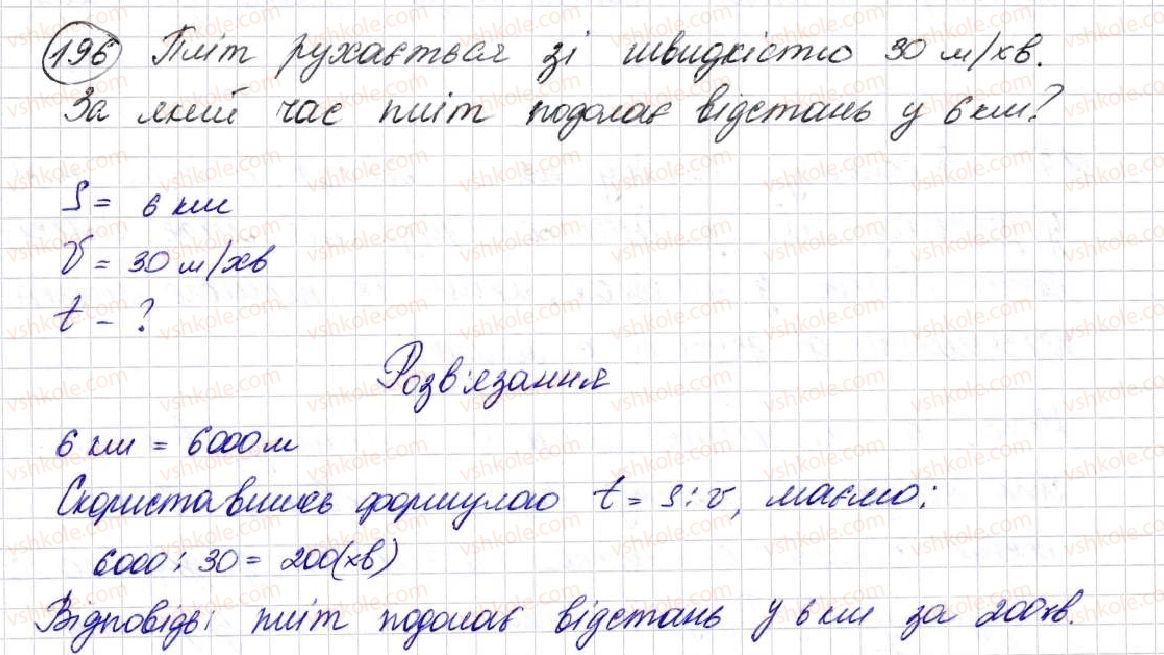 196 Пліт рухається зі швидкістю 30 м/хв.
За який час пліт подолає відстань у 6 км?
S = 6 км
V = 30 м/хв
t - ?
Розв'язання
6 км = 6000 м
Скориставшись формулою t = S : v, маємо:
6000 : 30 = 200(хв)
Відповідь: пліт подолає відстань у 6 км за 200хв.